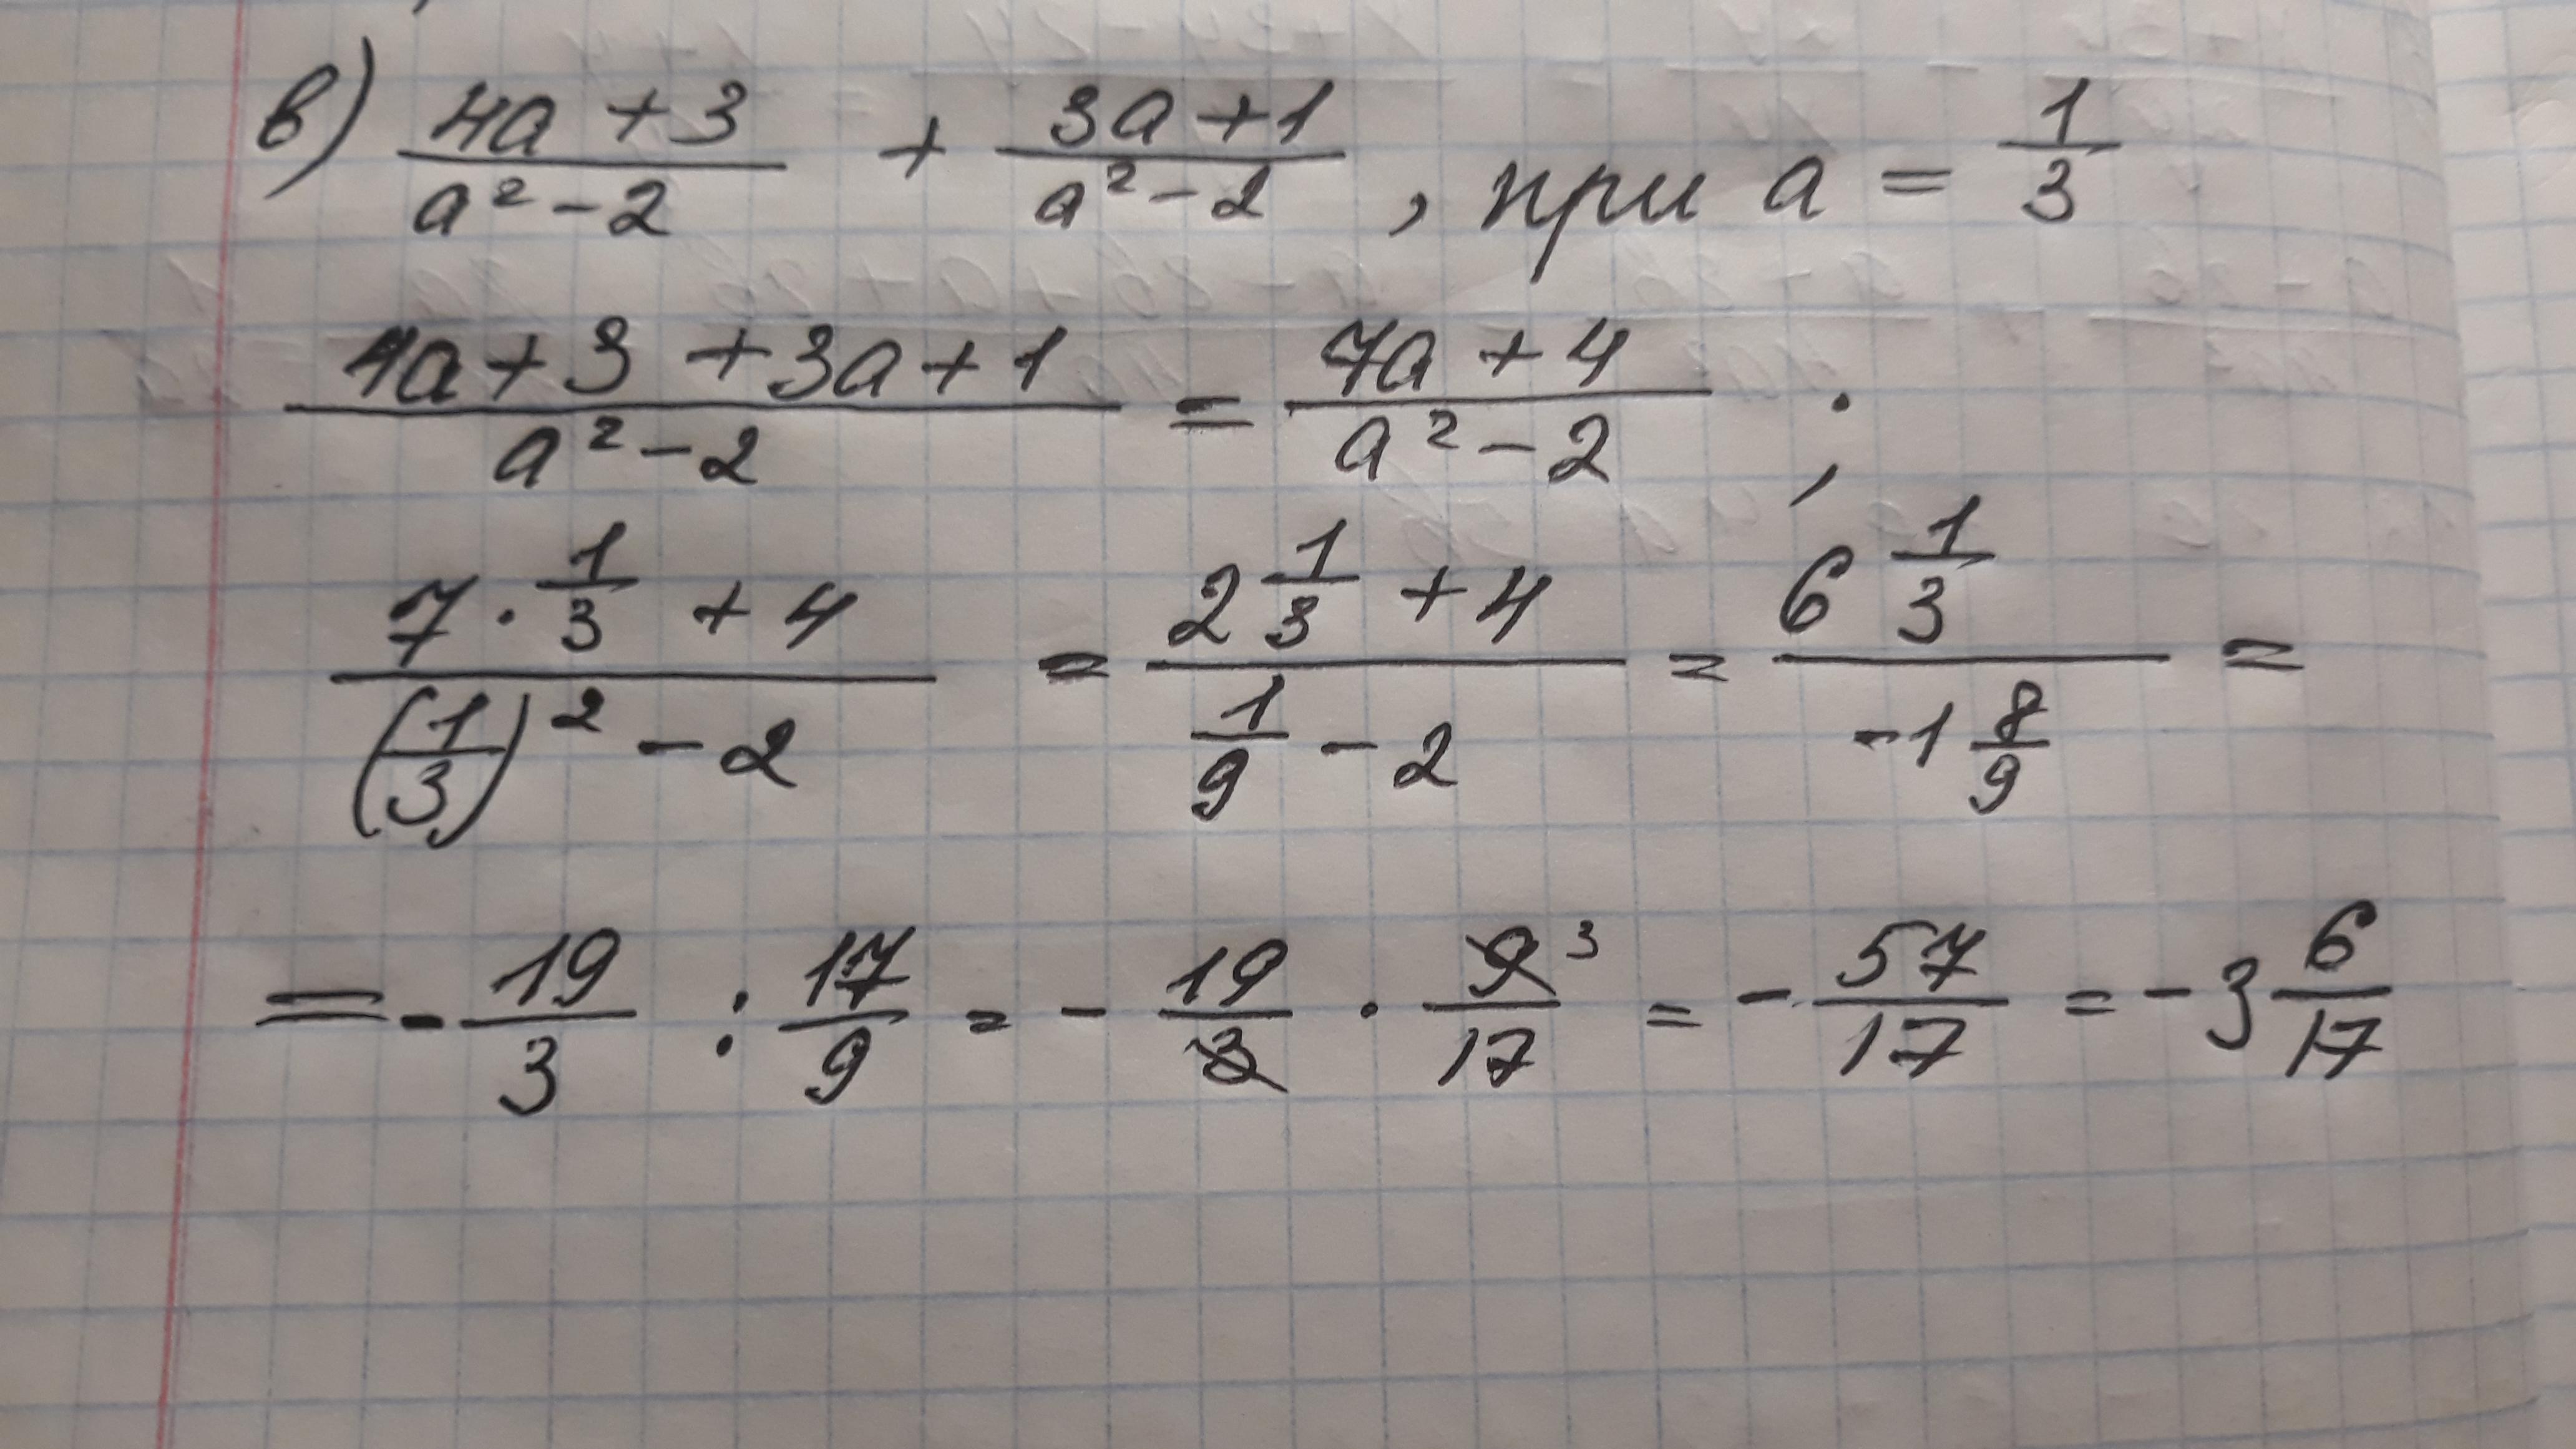 в) (4a + 3)/(a² - 2) + (3a + 1)/(a² - 2), при a = 1/3
(4a + 3 + 3a + 1)/(a² - 2) = (7a + 4)/(a² - 2) ;
(7 · 1/3 + 4)/((1/3)² - 2) = (2 1/3 + 4)/(1/9 - 2) = (6 1/3)/(-1 8/9) =
= - 19/3 : 17/9 = - 19/3 · 9 3/17 = - 57/17 = - 3 6/17